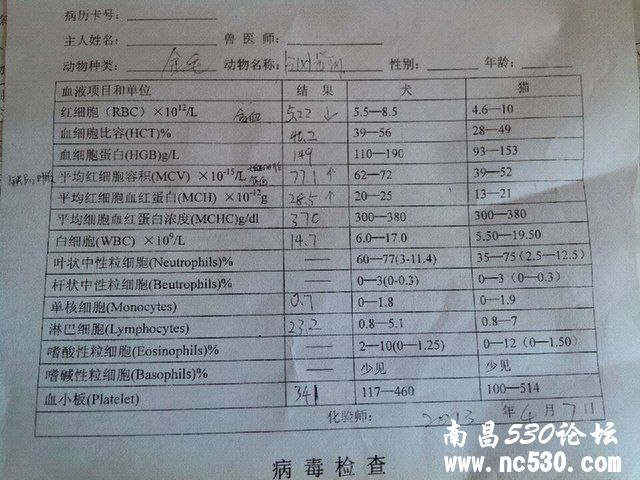 病历卡号：
主人姓名： 兽医师：
动物种类： 金毛 动物名称： 性别： 年龄：
血液项目和单位 结 果 犬 猫
红细胞（RBC）×10¹²/L 贫血 5.22 ↓ 5.5—8.5 4.6—10
血细胞比容(HCT)% 40.2 39—56 28—49
血细胞蛋白(HGB)g/L 149 110—190 93—153
平均红细胞容积(MCV) ×10⁻¹⁵/L 77.1 ↑ 62—72 39—52
平均红细胞血红蛋白(MCH) ×10⁻¹²g 28.5 ↑ 20—25 13—21
平均细胞血红蛋白浓度(MCHC)g/dl 370 300—380 300—380
白细胞(WBC) ×10⁹/L 14.7 6.0—17.0 5.50—19.50
叶状中性粒细胞(Neutrophils)% — 60—77(3-11.4) 35—75(2.5—12.5)
杆状中性粒细胞(Beutrophils)% — 0—3(0-0.3) 0—3（0—0.3）
单核细胞(Monocytes) 0.7 0—1.8 0—1.9
淋巴细胞(Lymphocytes) 23.2 0.8—5.1 0.8—7
嗜酸性粒细胞(Eosinophils)% — 2—10(0—1.25) 0—12（0—1.50）
嗜碱性粒细胞(Basophils)% — 少见 少见
血小板(Platelet) 341 117—460 100—514
化验师： 2013 年 4 月 7 日
南昌530论坛
病 毒 检 查
www.nc530.com